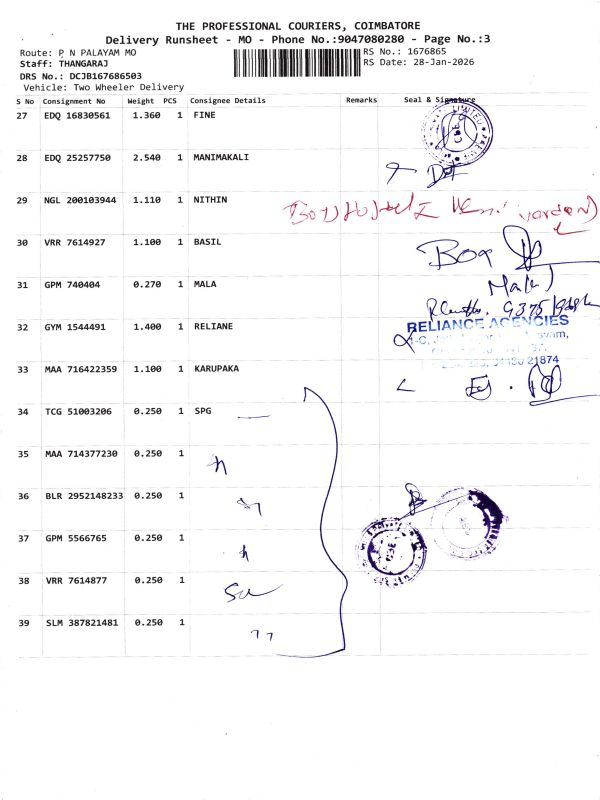 THE PROFESSIONAL COURIERS, COIMBATORE
Delivery Runsheet - MO - Phone No.:9047080280 - Page No.:3
Route: P N PALAYAM MO RS No.: 1676865
Staff: THANGARAJ RS Date: 28-Jan-2026
DRS No.: DCJB167686503
Vehicle: Two Wheeler Delivery
S No Consignment No Weight PCS Consignee Details Remarks Seal & Signature
27 EDQ 16830561 1.360 1 FINE
28 EDQ 25257750 2.540 1 MANIMAKALI
29 NGL 200103944 1.110 1 NITHIN
30 VRR 7614927 1.100 1 BASIL
31 GPM 740404 0.270 1 MALA
32 GYM 1544491 1.400 1 RELIANE
RELIANCE AGENCIES
21874
33 MAA 716422359 1.100 1 KARUPAKA
34 TCG 51003206 0.250 1 SPG
35 MAA 714377230 0.250 1
36 BLR 2952148233 0.250 1
37 GPM 5566765 0.250 1
38 VRR 7614877 0.250 1
39 SLM 387821481 0.250 1